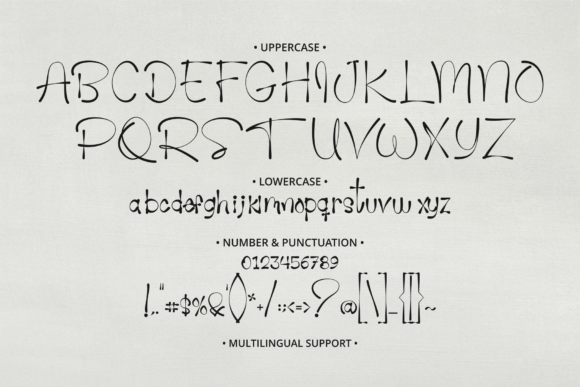 • UPPERCASE •
ABCDEFGHIJKLMNO
PQRSTUVWXYZ
• LOWERCASE •
abcdefghijklmnopqrstuvw xyz
• NUMBER & PUNCTUATION •
0123456789
!.,"#$%&'()*+/:;<=>?@[\]_{|}~
• MULTILINGUAL SUPPORT •